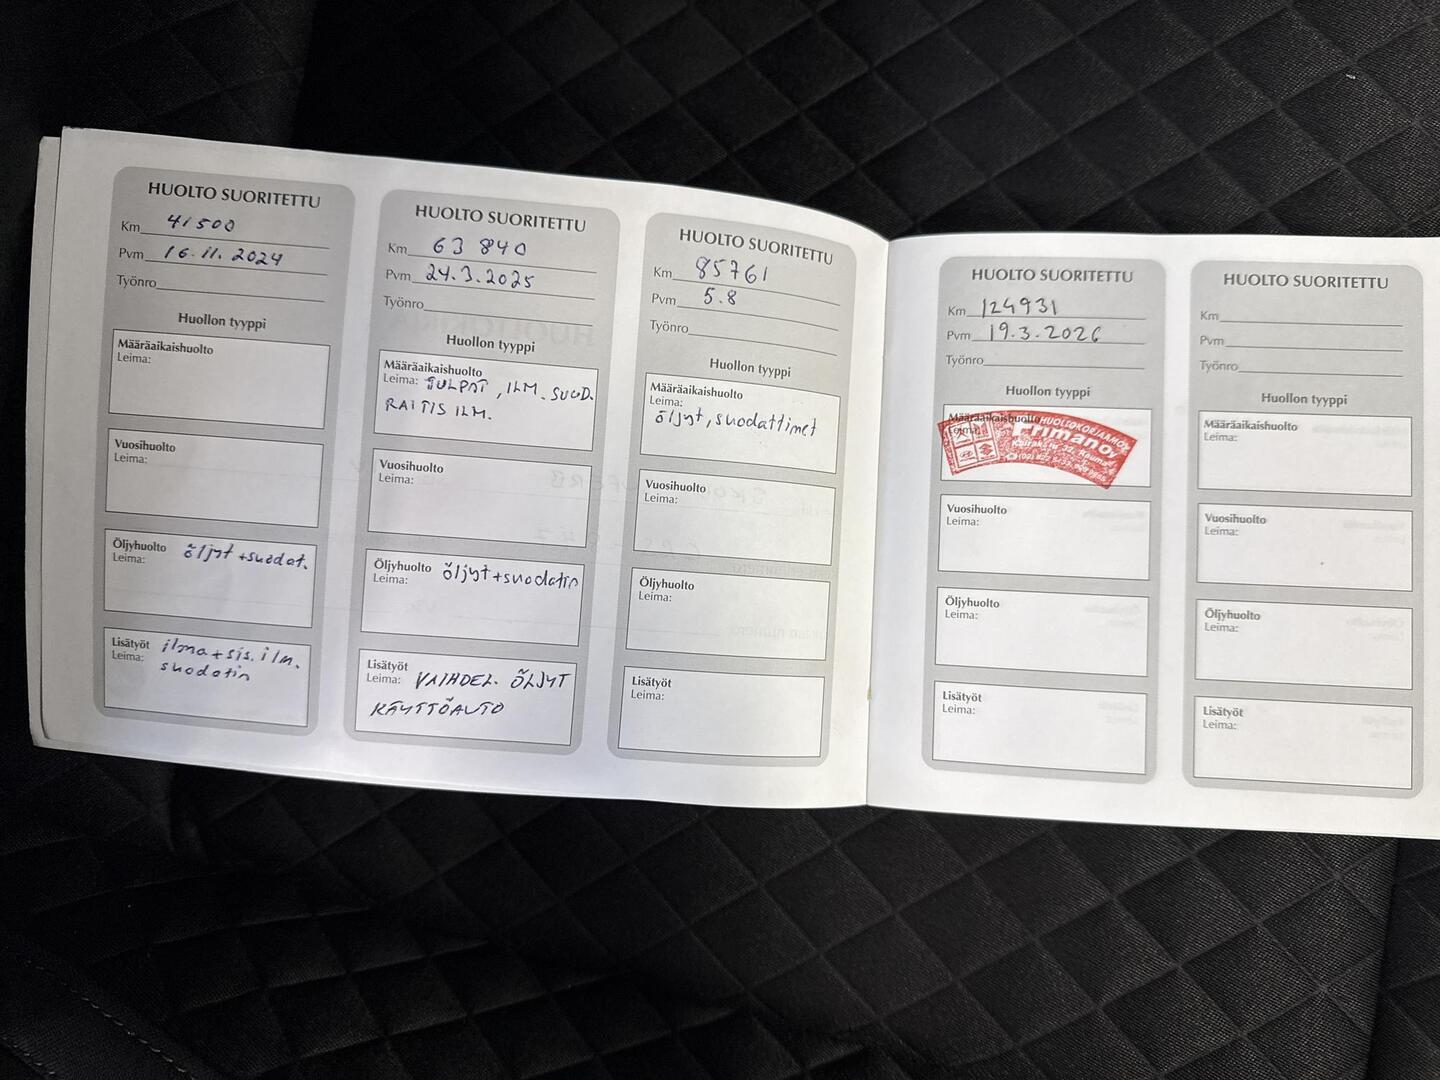 HUOLTO SUORITETTU
Km 41500
Pvm 16.11.2024
Työnro
Huollon tyyppi
Määräaikaishuolto
Leima:
Vuosihuolto
Leima:
Öljyhuolto öljyt + suodat.
Leima:
Lisätyöt ilma + sis. ilm.
Leima: suodatin
HUOLTO SUORITETTU
Km 63 840
Pvm 24.3.2025
Työnro
Huollon tyyppi
Määräaikaishuolto
Leima: TULPAT, ILM. SUOD.
RAITIS ILM.
Vuosihuolto
Leima:
Öljyhuolto öljyt + suodatin
Leima:
Lisätyöt
Leima: VAIHDEL. ÖLJYT
KÄYTTÖAUTO
HUOLTO SUORITETTU
Km 85761
Pvm 5.8
Työnro
Huollon tyyppi
Määräaikaishuolto
Leima:
öljyt, suodattimet
Vuosihuolto
Leima:
Öljyhuolto
Leima:
Lisätyöt
Leima:
HUOLTO SUORITETTU
Km 124931
Pvm 19.3.2026
Työnro
Huollon tyyppi
Määräaikaishuolto
Leima:
HUOLTOKORJAAMO
Friman Oy
Rauma
Vuosihuolto
Leima:
Öljyhuolto
Leima:
Lisätyöt
Leima:
HUOLTO SUORITETTU
Km
Pvm
Työnro
Huollon tyyppi
Määräaikaishuolto
Leima:
Vuosihuolto
Leima:
Öljyhuolto
Leima:
Lisätyöt
Leima: